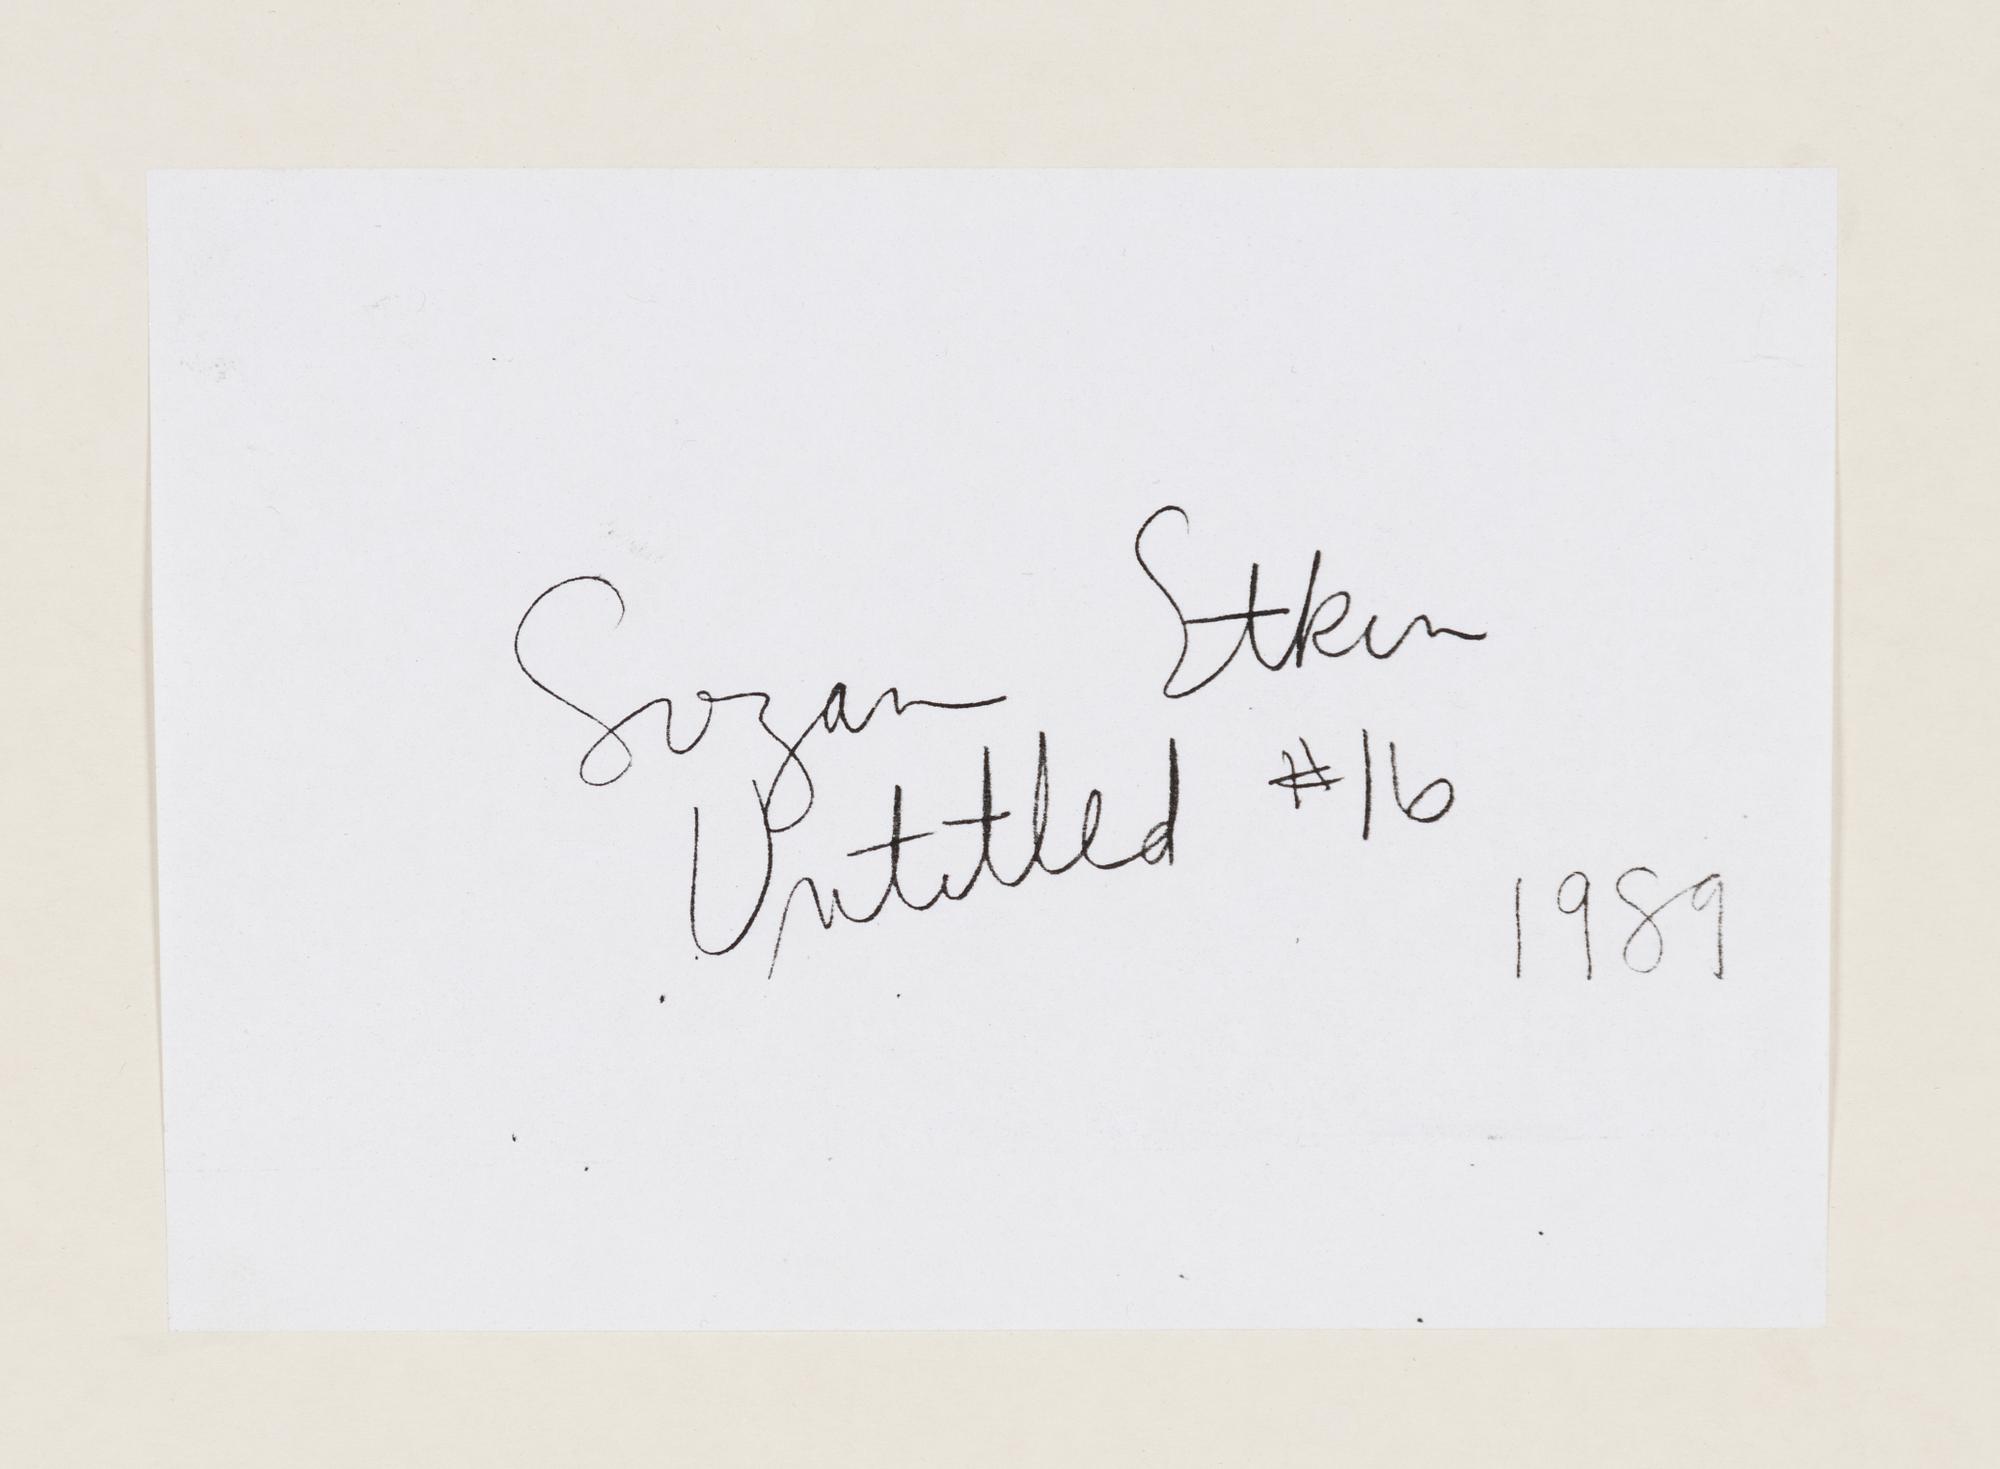 Suzan Etkin
Untitled #16
1989